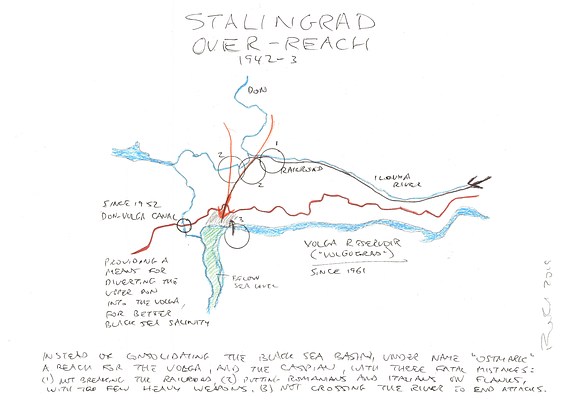 STALINGRAD
OVER-REACH
1942-3
DON
1
2
2
RAILROAD
ILOVLIA
RIVER
SINCE 1952
DON-VOLGA CANAL
3
VOLGA RESERVOIR
("VOLGOGRAD")
SINCE 1961
PROVIDING A
MEANS FOR
DIVERTING THE
UPPER DON
INTO THE VOLGA,
FOR BETTER
BLACK SEA SALINITY
BELOW
SEA LEVEL
2019
INSTEAD OF CONSOLIDATING THE BLACK SEA BASIN, UNDER NAME "OSTMARK"
A REACH FOR THE VOLGA, AND THE CASPIAN, WITH THREE FATAL MISTAKES:
(1) NOT BREAKING THE RAILROAD, (2) PUTTING ROMANIANS AND ITALIANS ON FLANKS,
WITH TOO FEW HEAVY WEAPONS. 3) NOT CROSSING THE RIVER TO END ATTACKS.